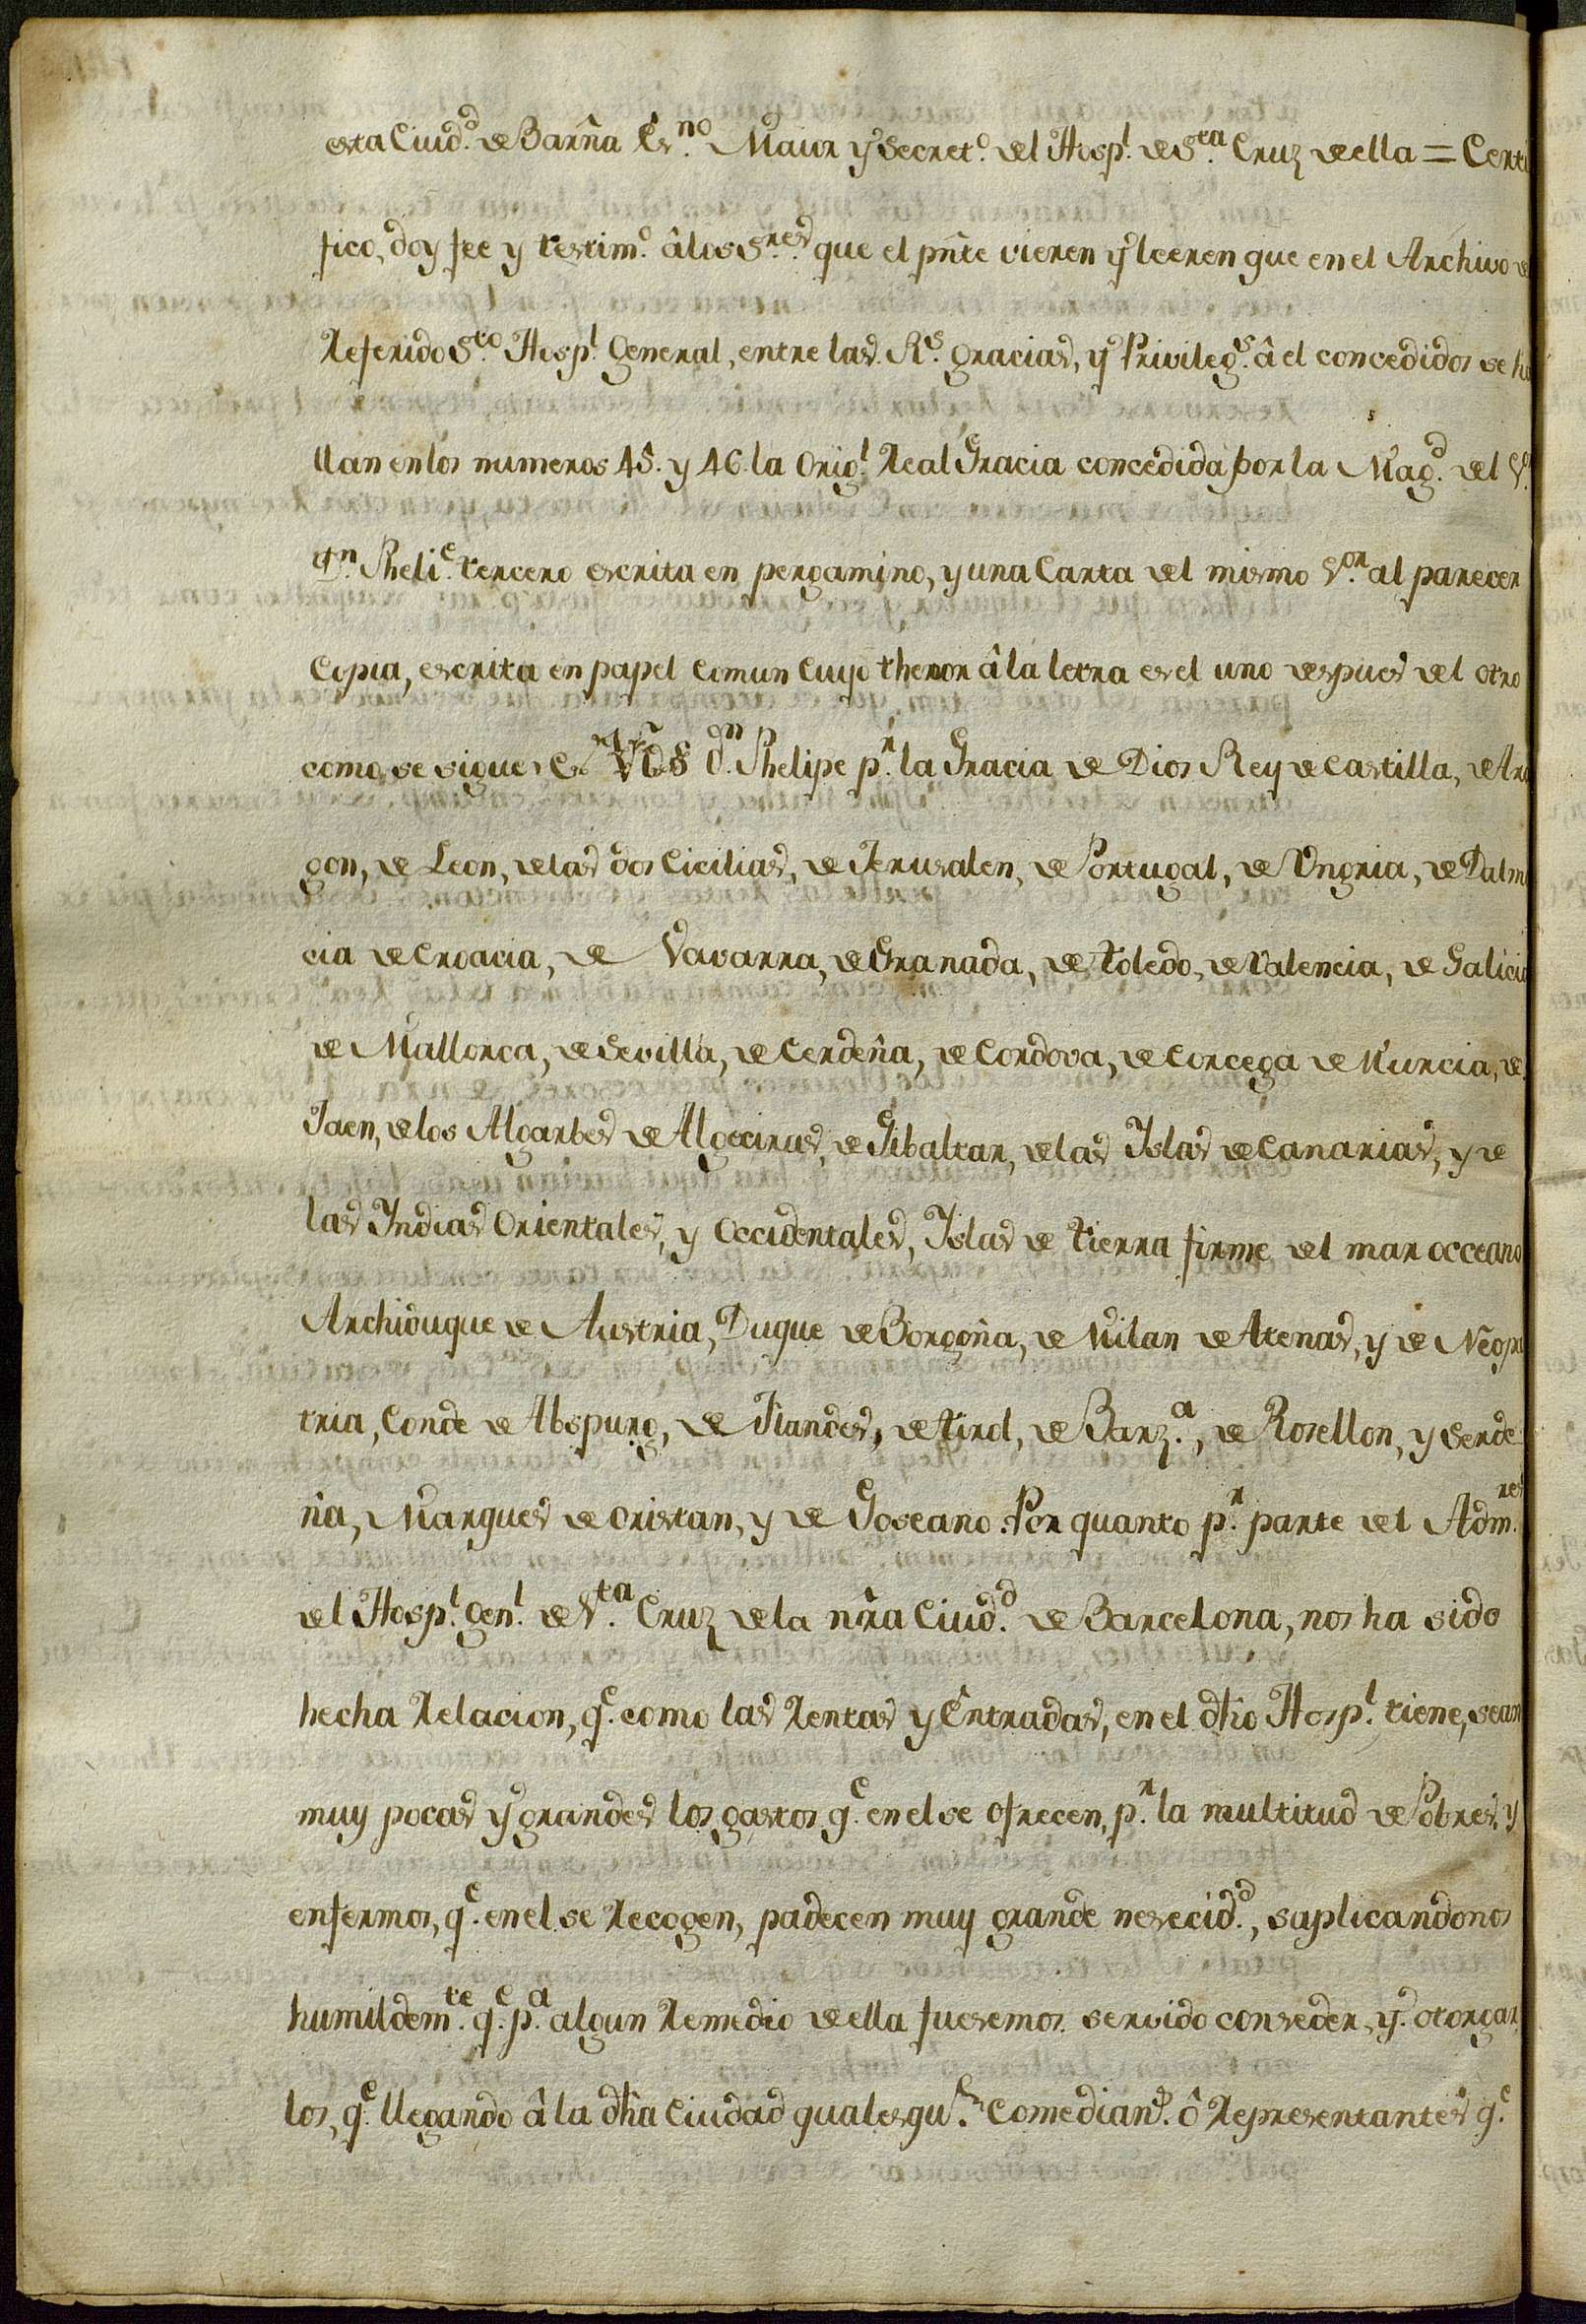 esta Ciud.d de Barña Es.no Maior y Secret.o del Hosp.l de S.ta Cruz de ella = Certi
fico, doy fee y testim.o â los S.res que el pñte vieren y leeren que en el Archivo de
Referido S.to Hosp.l General, entre las R.s gracias, y Privileg.s â el concedidos se ha
llan en los numeros 45. y 46. la Orig.l Real Gracia concedida por la Mag.d del S.
D.n Pheli.e tercero escrita en pergamino, y una Carta del mismo S.or al parecer
Copia, escrita en papel Comun Cuyo thenor â la letra es el uno despues del otro
como se sigue: Nos d.n Phelipe p.r la Gracia de Dios Rey de Castilla, de Ara
gon, de Leon, de las dos Cicilias, de Jerusalen, de Portugal, de Ungria, de Dalm
cia de Croacia, de Navarra, de Granada, de Toledo, de Valencia, de Galicia
de Mallorca, de Sevilla, de Cerdeña, de Cordova, de Corcega de Murcia, de
Jaen, de los Algarbes de Algeciras, de Gibaltar, de las Islas de Canarias, y de
las Indias Orientales, y Occidentales, Islas de tierra firme del mar occeano
Archiduque de Austria, Duque de Borgoña, de Milan de Atenas, y de Neopa
tria, Conde de Abspurg, de Flandes, de Tirol, de Barz.a, de Rosellon, y Serde
ña, Marques de Oristan, y de Goseano: Por quanto p.r parte del Adm.res
del Hosp.l gen.l de S.ta Cruz de la nr̃a Ciud.d de Barcelona, nos ha sido
hecha Relacion, q.e como las Rentas y Entradas, en el dho Hosp.l tiene, sean
muy pocas y grandes los gastos q.e en el se ofrecen, p.r la multitud de Pobres, y
enfermos, q.e en el se Recogen, padecen muy grande nesecid.d, suplicandonos
humildem.te q.e p.a algun Remedio de ella fuesemos servido conseder, y otorgar
los, q.e llegando â la dha Ciudad qualesqu.r Comedian.s ô Representantes q.e